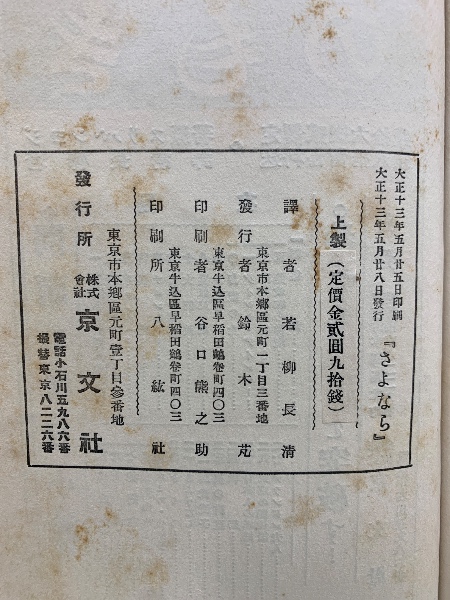 大正十三年五月廿五日印刷
大正十三年五月廿八日發行
『さよなら』
上製(定價金貳圓九拾錢)
譯者 若柳長清
東京市本鄉區元町一丁目三番地
發行者 鈴木芃
東京牛込區早稻田鶴卷町四〇三
印刷者 谷口熊之助
東京牛込區早稻田鶴卷町四〇三
印刷所 八紘社
東京市本鄉區元町壹丁目參番地
發行所 株式會社 京文社
電話小石川五九八六番
振替東京八二二六番